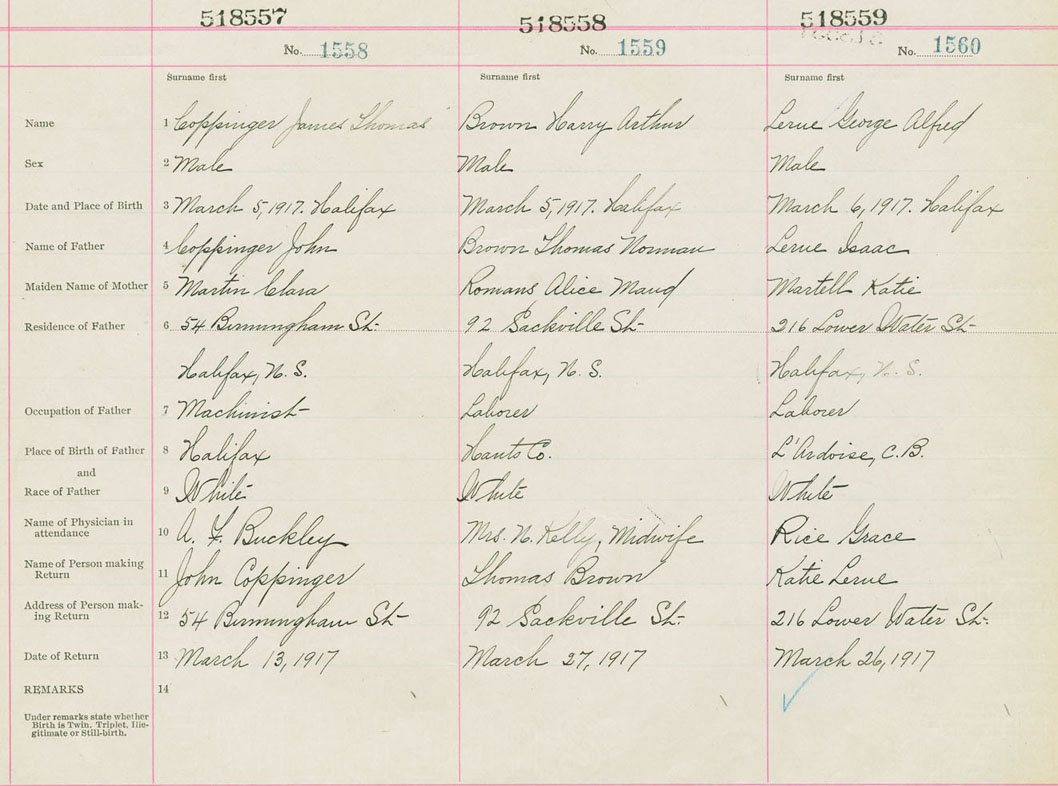 518557 518558 518559
No. 1558 No. 1559 No. 1560
Surname first Surname first Surname first
Name 1 Coppinger James Thomas Brown Harry Arthur Lerue George Alfred
Sex 2 Male Male Male
Date and Place of Birth 3 March 5, 1917. Halifax March 5, 1917. Halifax March 6, 1917. Halifax
Name of Father 4 Coppinger John Brown Thomas Norman Lerue Isaac
Maiden Name of Mother 5 Martin Clara Romans Alice Maud Martell Katie
Residence of Father 6 54 Birmingham St. 92 Sackville St. 216 Lower Water St.
Halifax, N.S. Halifax, N.S. Halifax, N.S.
Occupation of Father 7 Machinist Laborer Laborer
Place of Birth of Father 8 Halifax Hants Co. L'Ardoise, C.B.
and
Race of Father 9 White White White
Name of Physician in
attendance 10 A. F. Buckley Mrs. N. Kelly, Midwife Rice Grace
Name of Person making
Return 11 John Coppinger Thomas Brown Katie Lerue
Address of Person mak-
ing Return 12 54 Birmingham St 92 Sackville St. 216 Lower Water St.
Date of Return 13 March 13, 1917 March 27, 1917 March 26, 1917
REMARKS 14
Under remarks state whether
Birth is Twin. Triplet, Ille-
gitimate or Still-birth.